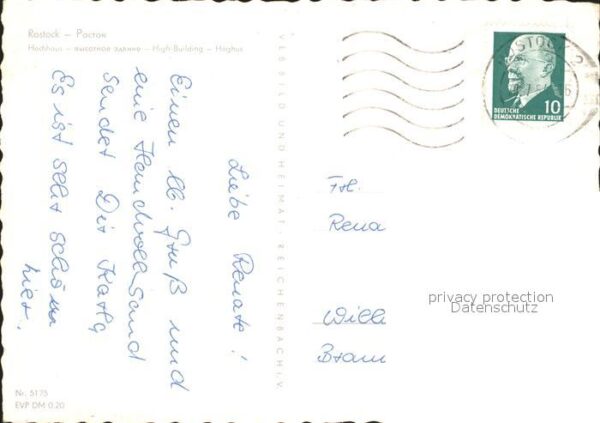 Rostock – Росток
Hochhaus – высотное здание – High-Building – Höghus
Liebe Renate!
Einen lb. Gruß und
eine Handvoll Sand
sendet Dir Karla
Es ist sehr schön
hier.
VEB BILD UND HEIMAT, REICHENBACH I. V.
ROSTOCK 2
10
DEUTSCHE
DEMOKRATISCHE REPUBLIK
Frl.
Rena
privacy protection
Datenschutz
Wilh
Bram
Nr. 5175
EVP DM 0.20